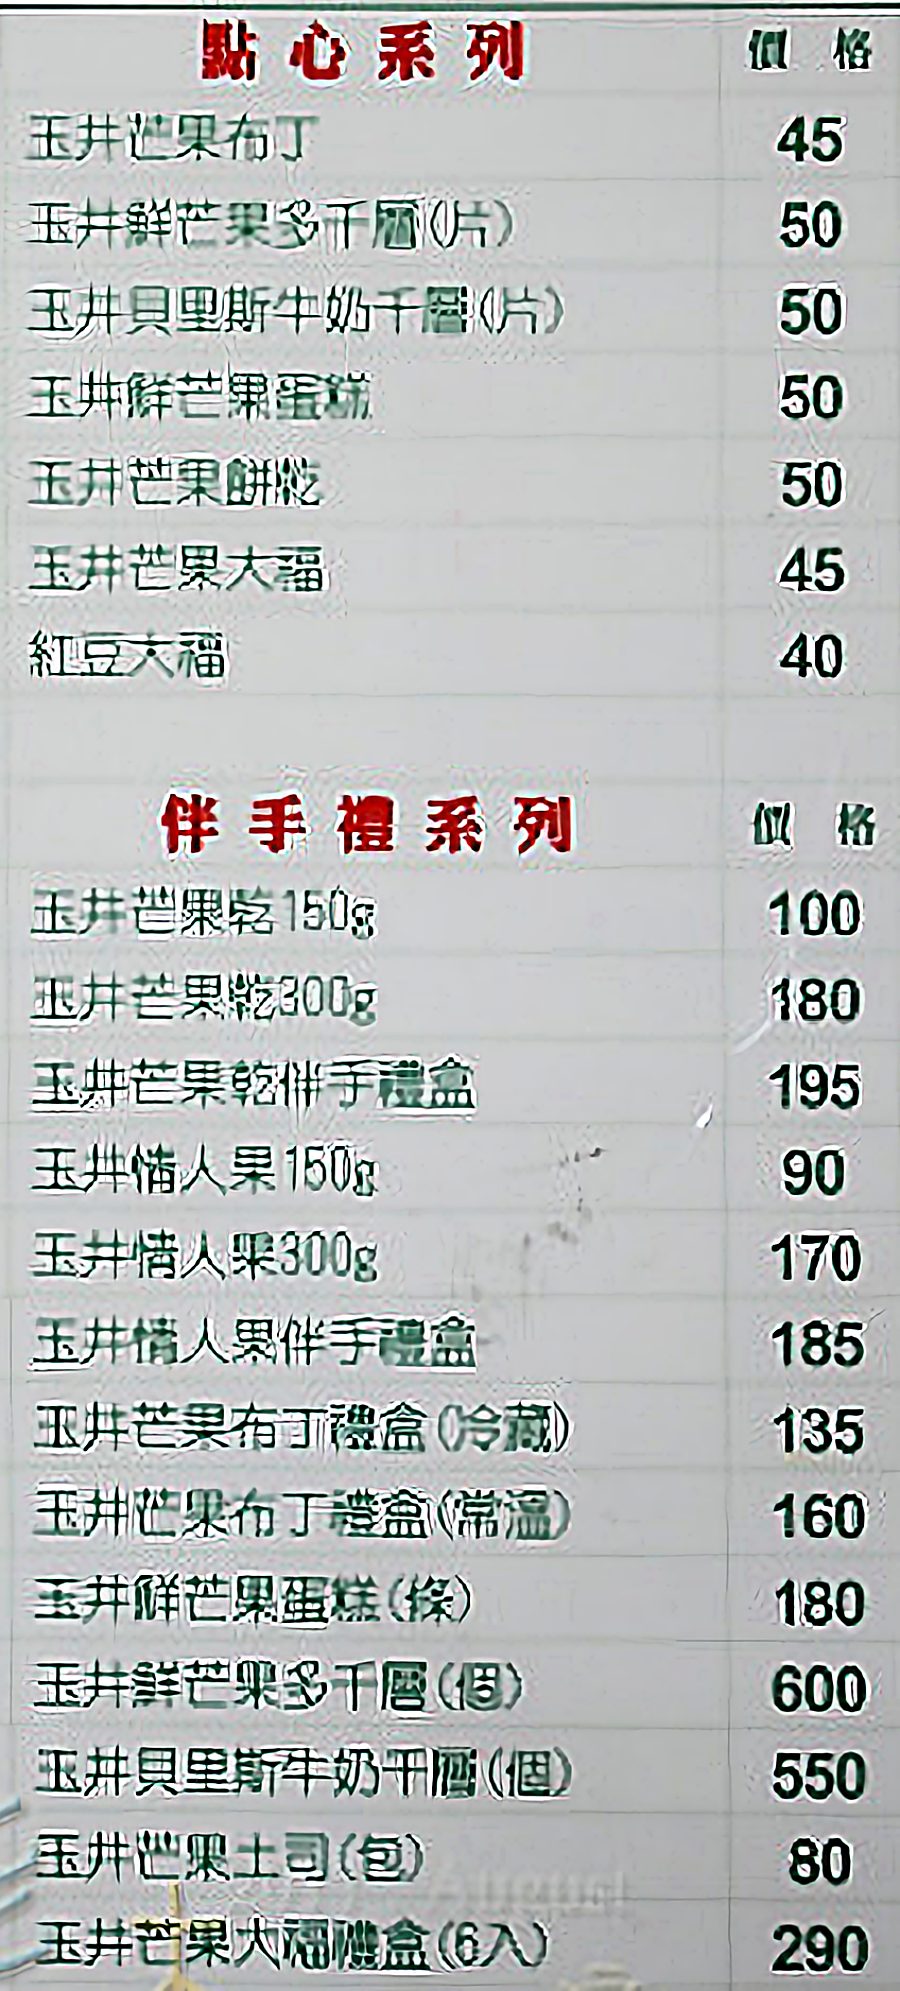 點心系列 價格
玉井芒果布丁 45
玉井鮮芒果多千層(片) 50
玉井貝里斯牛奶千層(片) 50
玉井鮮芒果蛋糕 50
玉井芒果餅乾 50
玉井芒果大福 45
紅豆大福 40
伴手禮系列 價格
玉井芒果乾150g 100
玉井芒果乾300g 180
玉井芒果乾伴手禮盒 195
玉井情人果150g 90
玉井情人果300g 170
玉井情人果伴手禮盒 185
玉井芒果布丁禮盒(冷藏) 135
玉井芒果布丁禮盒(常溫) 160
玉井鮮芒果蛋糕(條) 180
玉井鮮芒果多千層(個) 600
玉井貝里斯牛奶千層(個) 550
玉井芒果土司(包) 80
玉井芒果大福禮盒(6入) 290